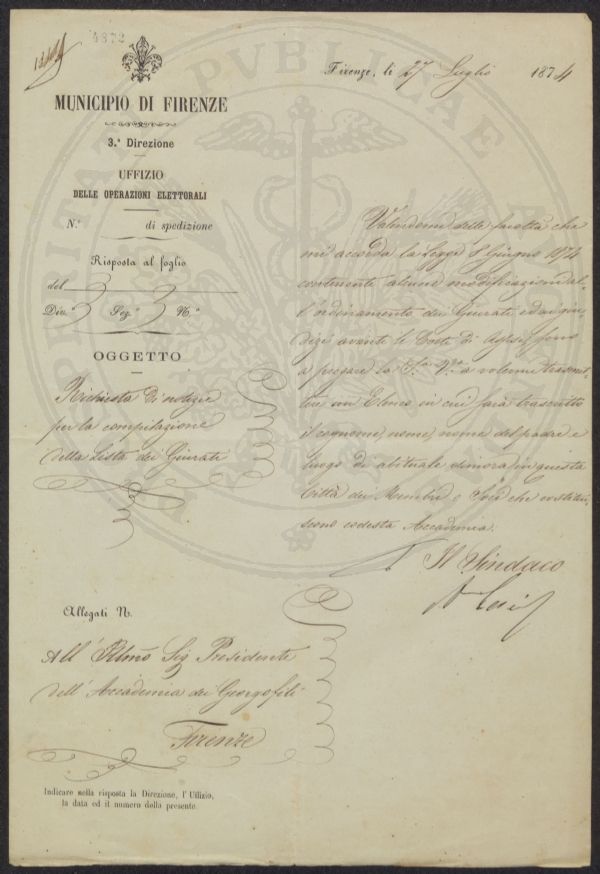 4872
MUNICIPIO DI FIRENZE
3.ª Direzione
UFFIZIO
DELLE OPERAZIONI ELETTORALI
N.º di spedizione
Risposta al foglio
del
Div.e 3 Sez.e 3 N.º
OGGETTO
Richiesta di notizie
per la compilazione
della Lista dei Giurati
Firenze, li 27 Luglio 1874
Valendomi della facoltà che
mi accorda la legge 8 Giugno 1874
contenente alcune modificazioni al
l'ordinamento dei Giurati ed ai giu
dizi avanti le Corti di Assise, sono
a pregare la S.a V.a a volermi trasmet
tere un Elenco in cui sarà trascritto
il cognome, nome, nome del padre e
luogo di abituale dimora in questa
Città dei Membri o Soci che costitui
scono codesta Accademia.
Il Sindaco
Allegati N.
All' Illmo Sig Presidente
dell' Accademia dei Georgofili
Firenze
Indicare nella risposta la Direzione, l'Uffizio,
la data ed il numero della presente.
PUBLICAE